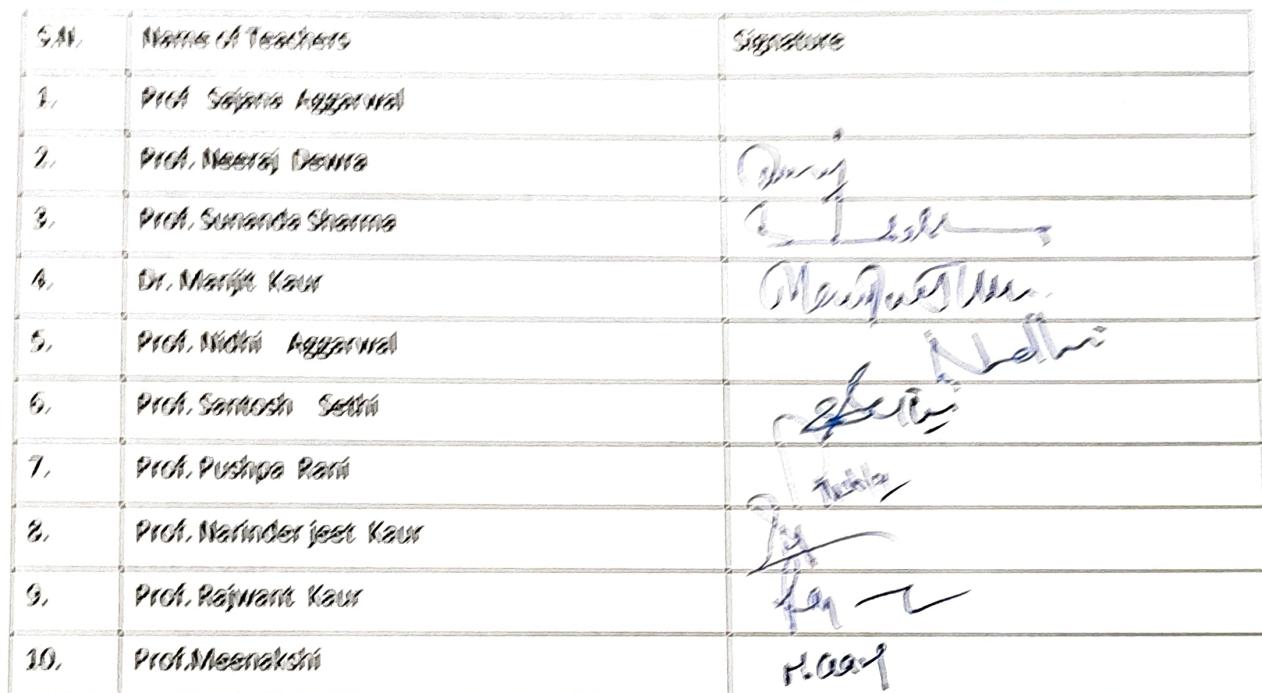 S.N. Name of Teachers Signature
1. Prof Sajana Aggarwal
2. Prof. Neeraj Dewra
3. Prof. Sunanda Sharma
4. Dr. Manjit Kaur
5. Prof. Nidhi Aggarwal Nidhi
6. Prof. Santosh Sethi
7. Prof. Pushpa Rani
8. Prof. Narinder jeet Kaur
9. Prof. Rajwant Kaur
10. Prof.Meenakshi